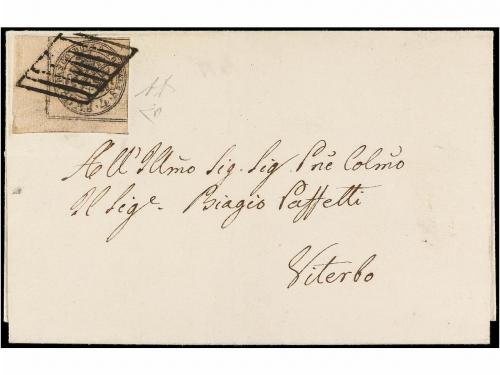 All'Illmo Sig. Sig. Pne Colmo
Il Sige. Biagio Paffetti
Viterbo